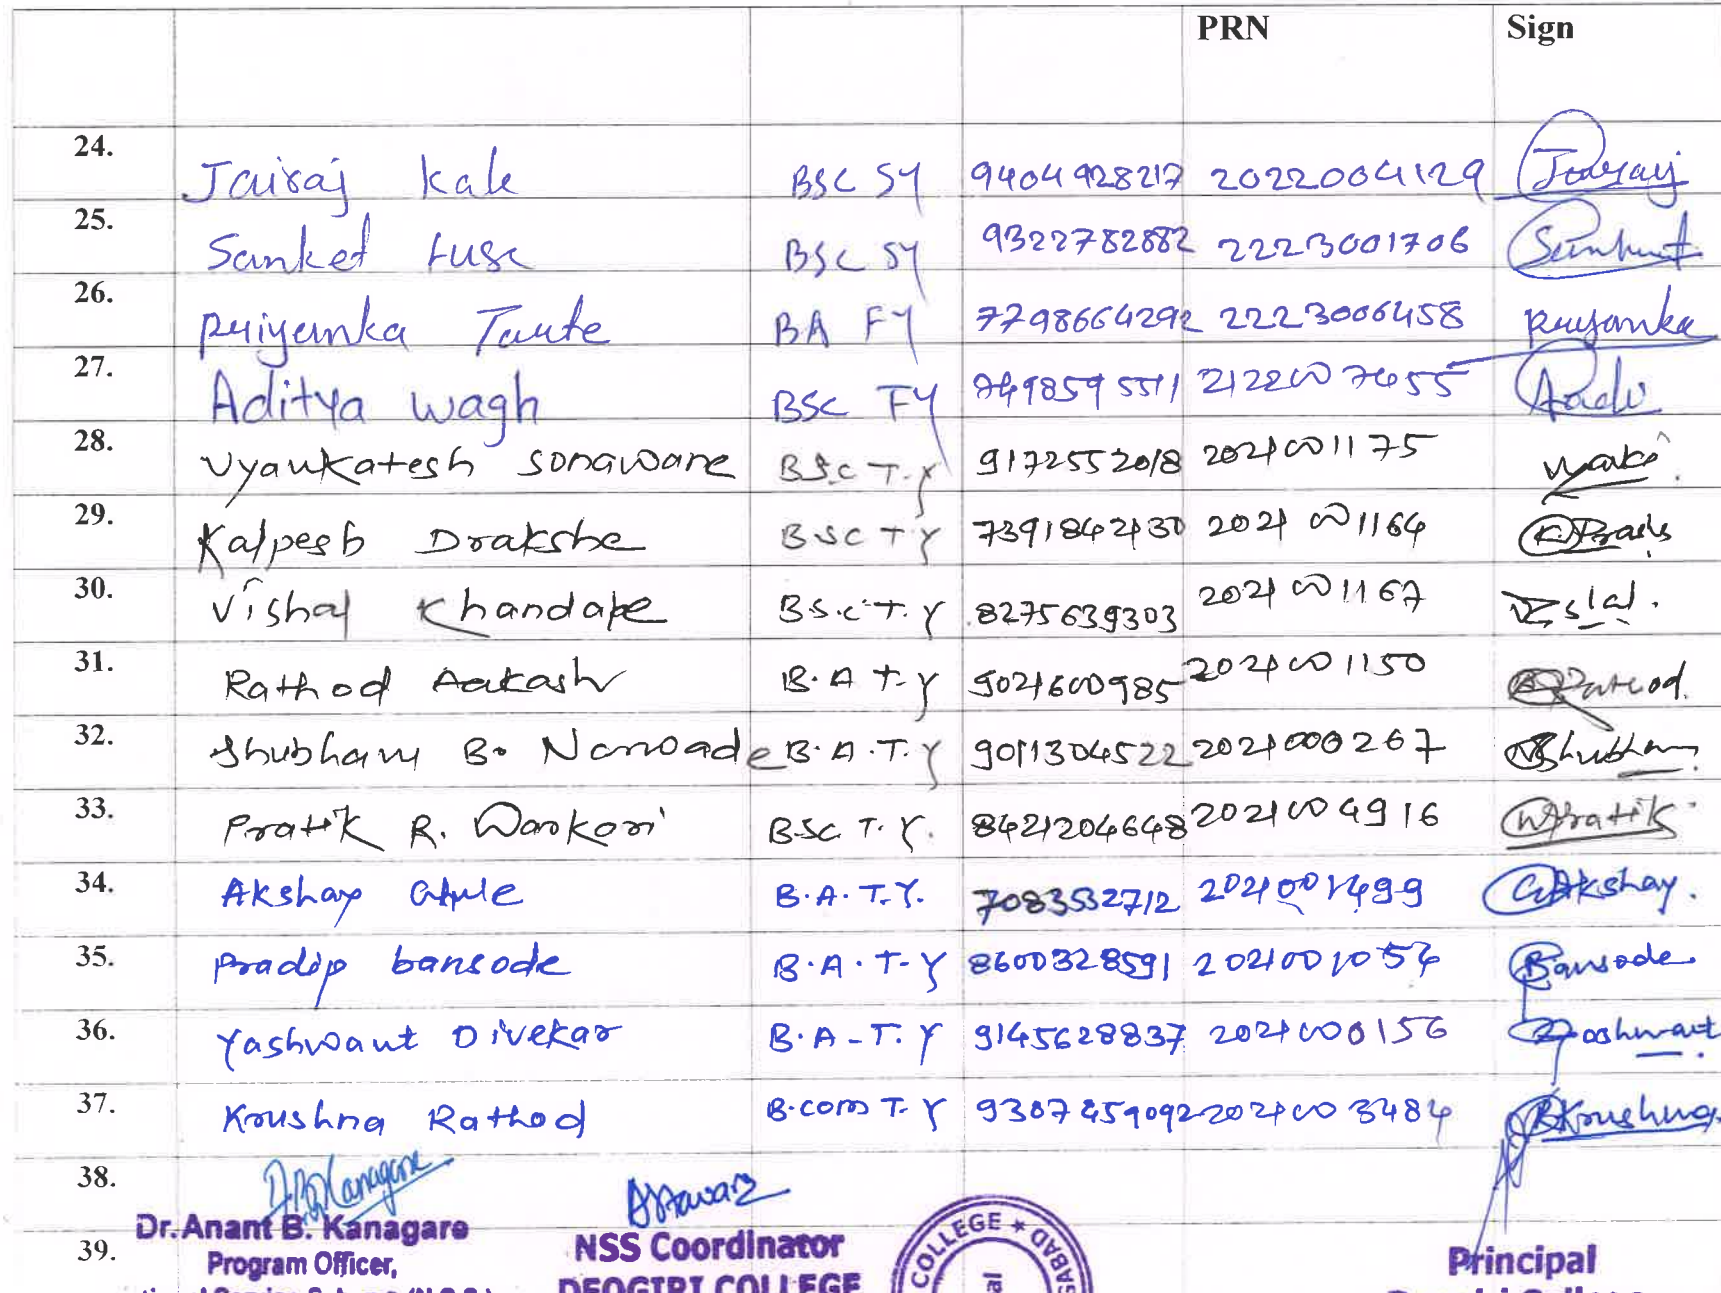 PRN Sign
24. Jairaj Kale BSC SY 9404928217 2022004129 Jairaj
25. Sanket BSC SY 9322782882 2223001706 Sanket
26. Priyanka Taute BA FY 7798664292 2223006458 Priyanka
27. Aditya Wagh BSC FY 7498595511 2122007455 Aadi
28. Vyankatesh Sonawane B.Sc T.Y 9172552018 2021001175
29. Kalpesh Drakshe BSC T.Y 7391842130 2021001164
30. Vishal Khandare B.Sc T.Y 8275639303 2021001167
31. Rathod Aakash B.A T.Y 9021600985 2021001150 Rathod
32. Shubham B. Narwade B.A.T.Y 9011304522 2021000267 Shubham
33. Pratik R. Warkari BSC T.Y. 8421204648 2021004916 Pratik
34. Akshay B.A.T.Y. 7083532712 2021001499 Akshay.
35. Pradip bansode B.A.T.Y 8600328591 2021001054 Bansode
36. Yashwant Divekar B.A-T.Y 9145628837 2021000156 Yashwant
37. Krushna Rathod B.com T.Y 9307459092 2021003484 RKrushna
38.
Dr. Anant B. Kanagare
39.
Program Officer,
NSS Coordinator
DEOGIRI COLLEGE
COLLEGE ★
Principal